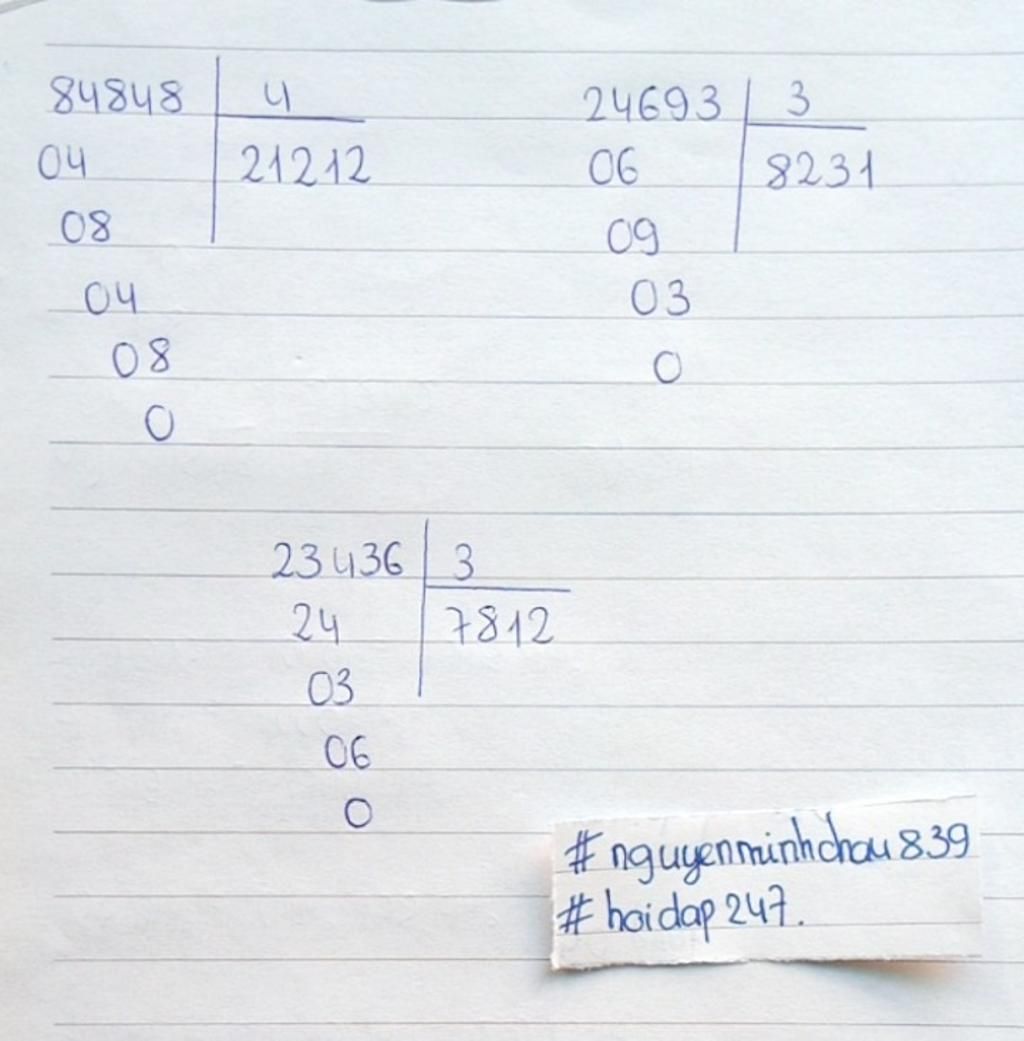 84848 4
04 21212
08
04
08
0
24693 3
06 8231
09
03
0
23436 3
24 7812
03
06
0
# nguyenminhchau839
# hoidap247.